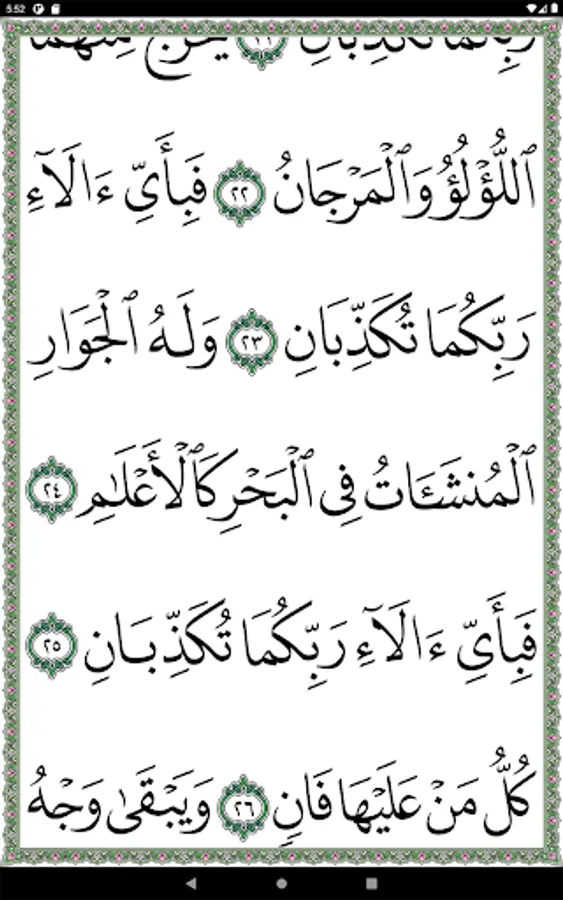 5:52
رَبِّكُمَا تُكَذِّبَانِ ٢١ يَخْرُجُ مِنْهُمَا
ٱللُّؤْلُؤُ وَٱلْمَرْجَانُ ٢٢ فَبِأَىِّ ءَالَآءِ
رَبِّكُمَا تُكَذِّبَانِ ٢٣ وَلَهُ ٱلْجَوَارِ
ٱلْمُنشَـَٔاتُ فِى ٱلْبَحْرِ كَٱلْأَعْلَـٰمِ ٢٤
فَبِأَىِّ ءَالَآءِ رَبِّكُمَا تُكَذِّبَانِ ٢٥
كُلُّ مَنْ عَلَيْهَا فَانٍ ٢٦ وَيَبْقَىٰ وَجْهُ